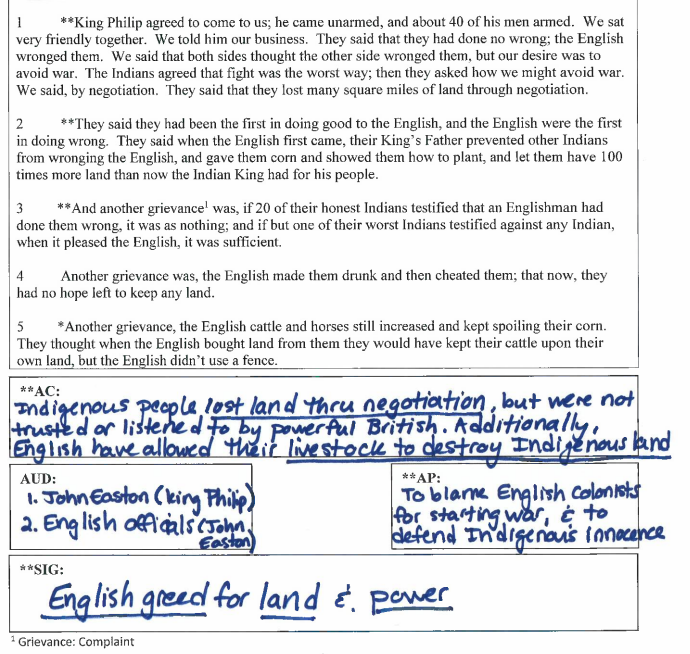 1 **King Philip agreed to come to us; he came unarmed, and about 40 of his men armed. We sat
very friendly together. We told him our business. They said that they had done no wrong; the English
wronged them. We said that both sides thought the other side wronged them, but our desire was to
avoid war. The Indians agreed that fight was the worst way; then they asked how we might avoid war.
We said, by negotiation. They said that they lost many square miles of land through negotiation.
2 **They said they had been the first in doing good to the English, and the English were the first
in doing wrong. They said when the English first came, their King's Father prevented other Indians
from wronging the English, and gave them corn and showed them how to plant, and let them have 100
times more land than now the Indian King had for his people.
3 **And another grievance¹ was, if 20 of their honest Indians testified that an Englishman had
done them wrong, it was as nothing; and if but one of their worst Indians testified against any Indian,
when it pleased the English, it was sufficient.
4 Another grievance was, the English made them drunk and then cheated them; that now, they
had no hope left to keep any land.
5 *Another grievance, the English cattle and horses still increased and kept spoiling their corn.
They thought when the English bought land from them they would have kept their cattle upon their
own land, but the English didn't use a fence.
**AC:
Indigenous people lost land thru negotiation, but were not
trusted or listened to by powerful British. Additionally,
English have allowed their livestock to destroy Indigenous land
AUD:
1. John Easton (King Philip)
2. English officials (John
Easton)
**AP:
To blame English colonists
for starting war, & to
defend Indigenous innocence
**SIG:
English greed for land &. power
¹ Grievance: Complaint